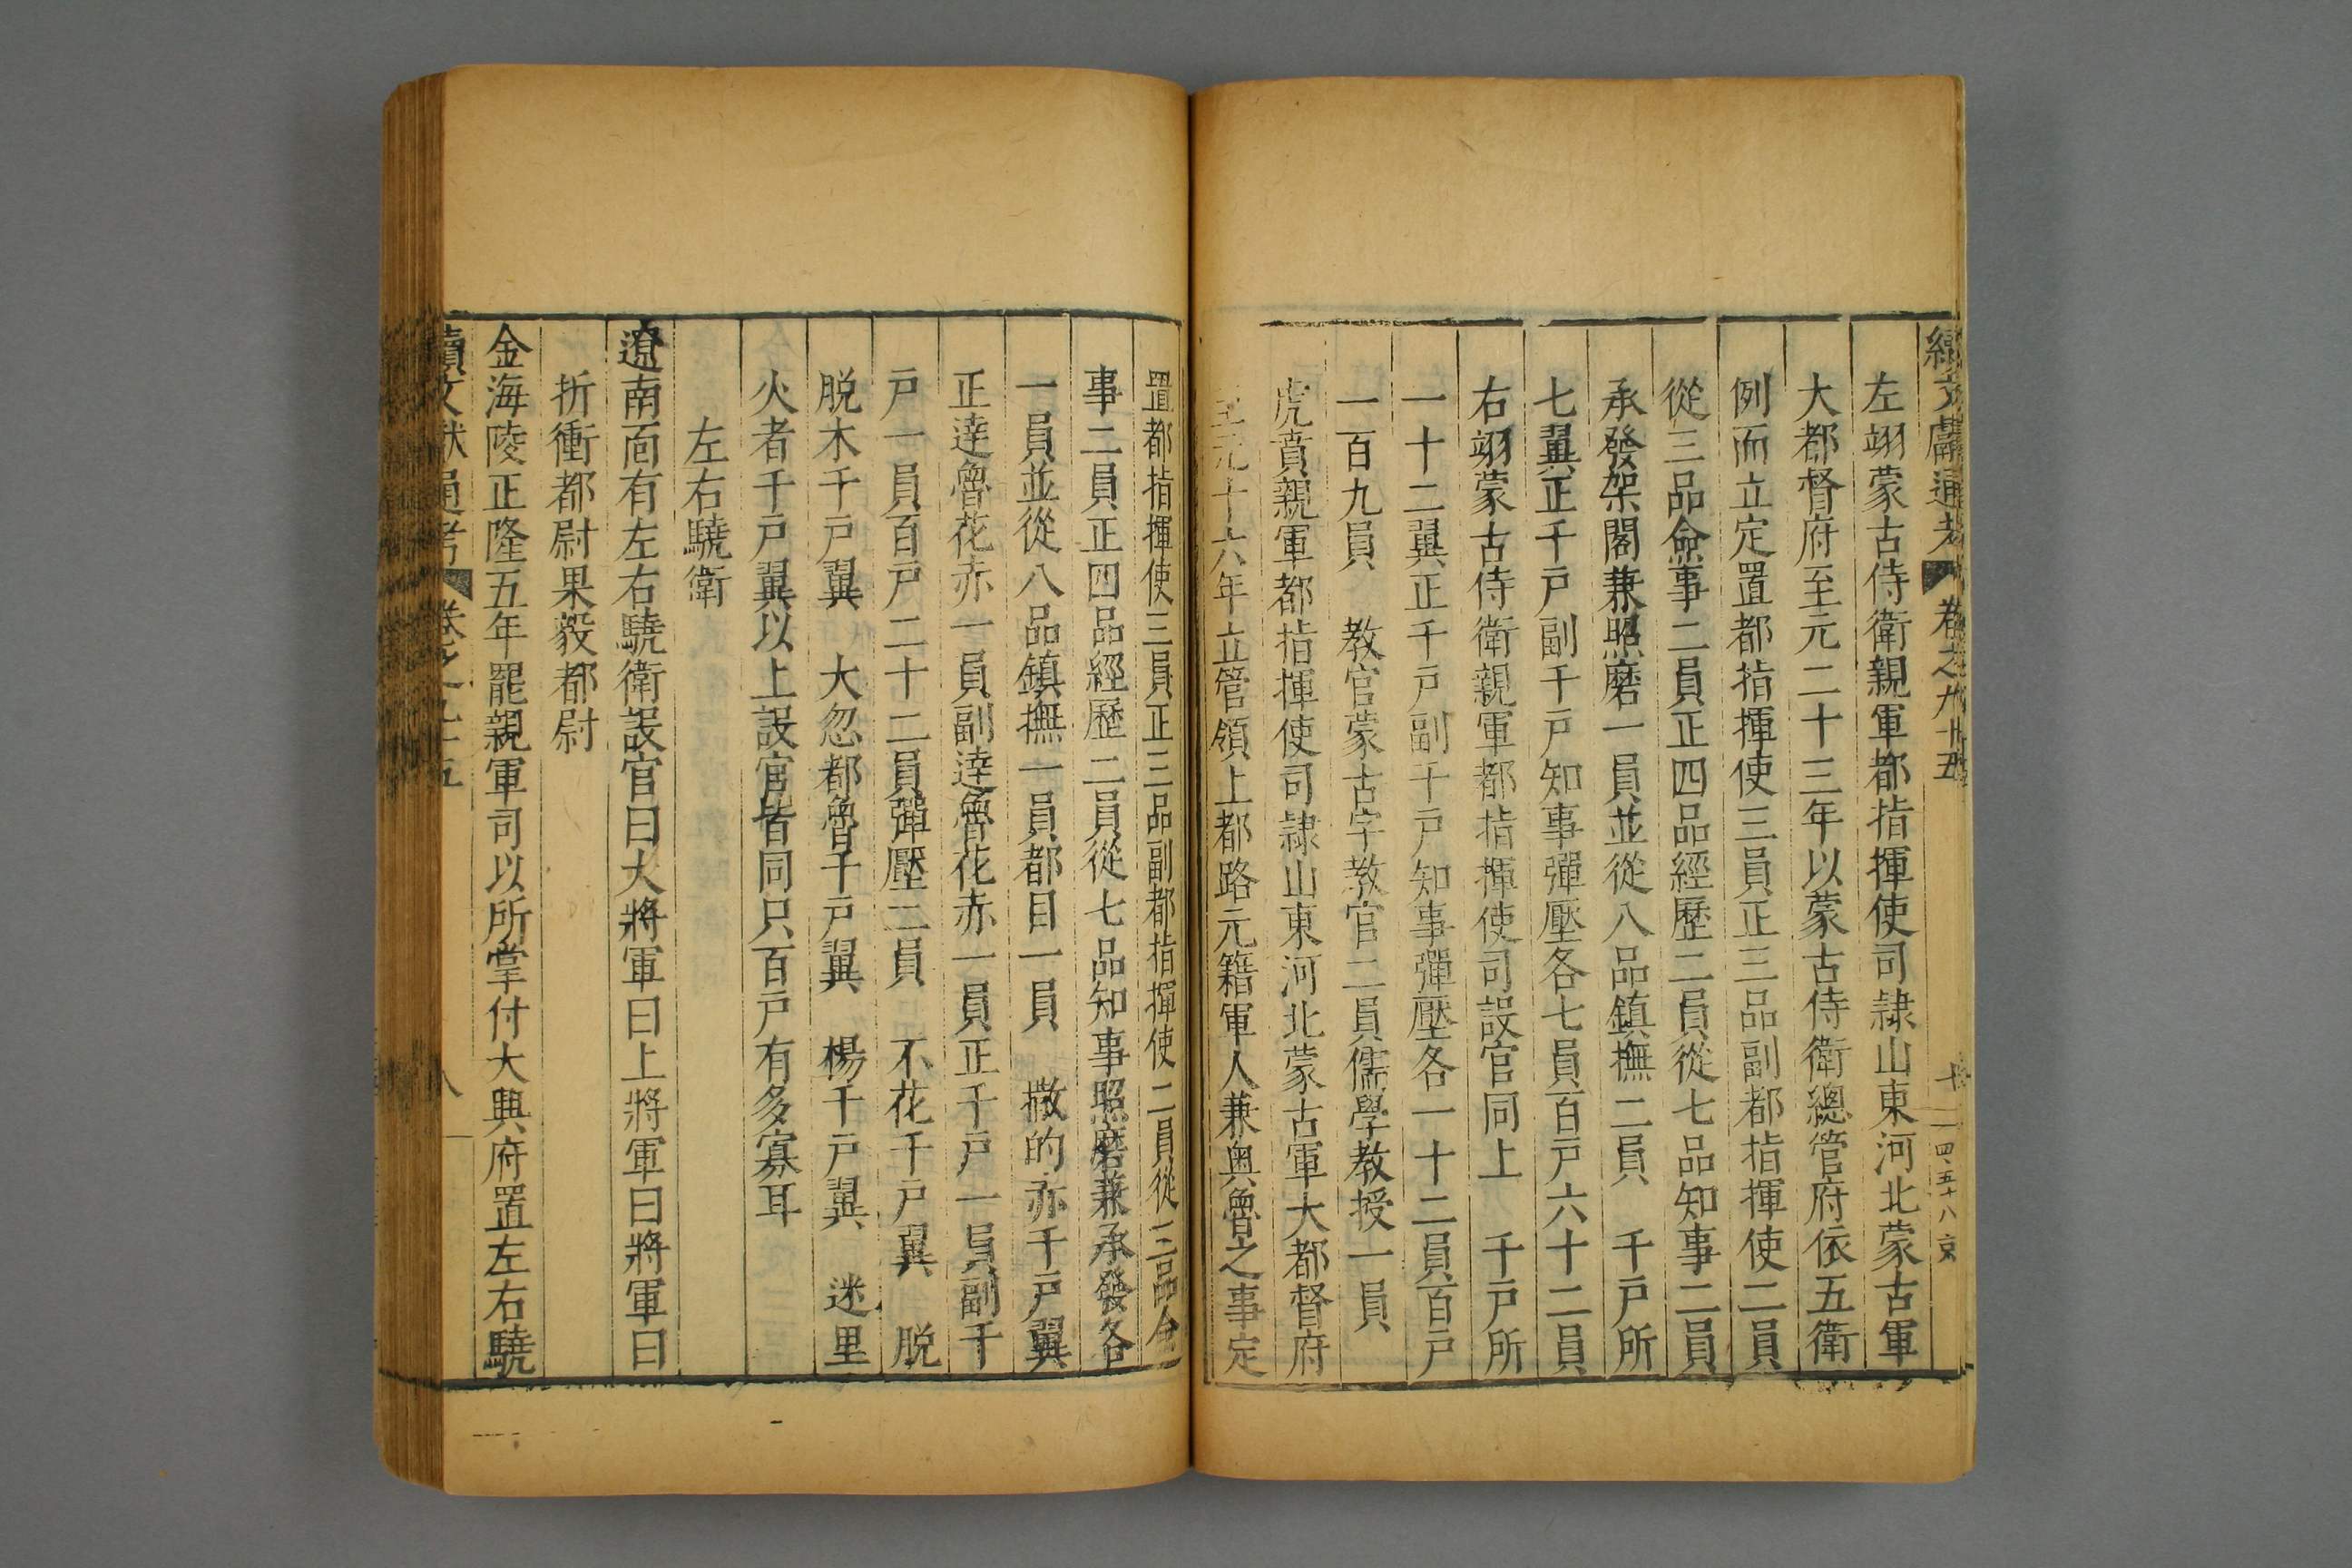 續文獻通考 卷之九十五 十 四五十八 京
左翊蒙古侍衛親軍都指揮使司隷山東河北蒙古軍
大都督府至元二十三年以蒙古侍衛總管府依五衛
例而立定置都指揮使三員正三品副都指揮使二員
從三品僉事二員正四品經歷二員從七品知事二員
承發架閣兼照磨一員並從八品鎮撫二員 千戸所
七翼正千戸副千戸知事彈壓各七員百戸六十二員
右翊蒙古侍衛親軍都指揮使司設官同上 千戸所
一十二翼正千戸副千戸知事彈壓各一十二員百戸
一百九員 教官蒙古字教官二員儒學教授一員
虎賁親軍都指揮使司隷山東河北蒙古軍大都督府
至元十六年立管領上都路元籍軍人兼奥魯之事定
置都指揮使三員正三品副都指揮使二員從三品僉
事二員正四品經歷二員從七品知事照磨兼承發各
一員並從八品鎮撫一員都目一員 撒的赤千戸翼
正達魯花赤一員副達魯花赤一員正千戸一員副千
戸一員百戸二十二員彈壓二員 不花千戸翼 脱
脱木千戸翼 大忽都魯千戸翼 楊千戸翼 迷里
火者千戸翼以上設官皆同只百戸有多寡耳
左右驍衛
遼南面有左右驍衛設官曰大將軍曰上將軍曰將軍曰
折衝都尉果毅都尉
金海陵正隆五年罷親軍司以所掌付大興府置左右驍
續文獻通考 卷之九十五 八